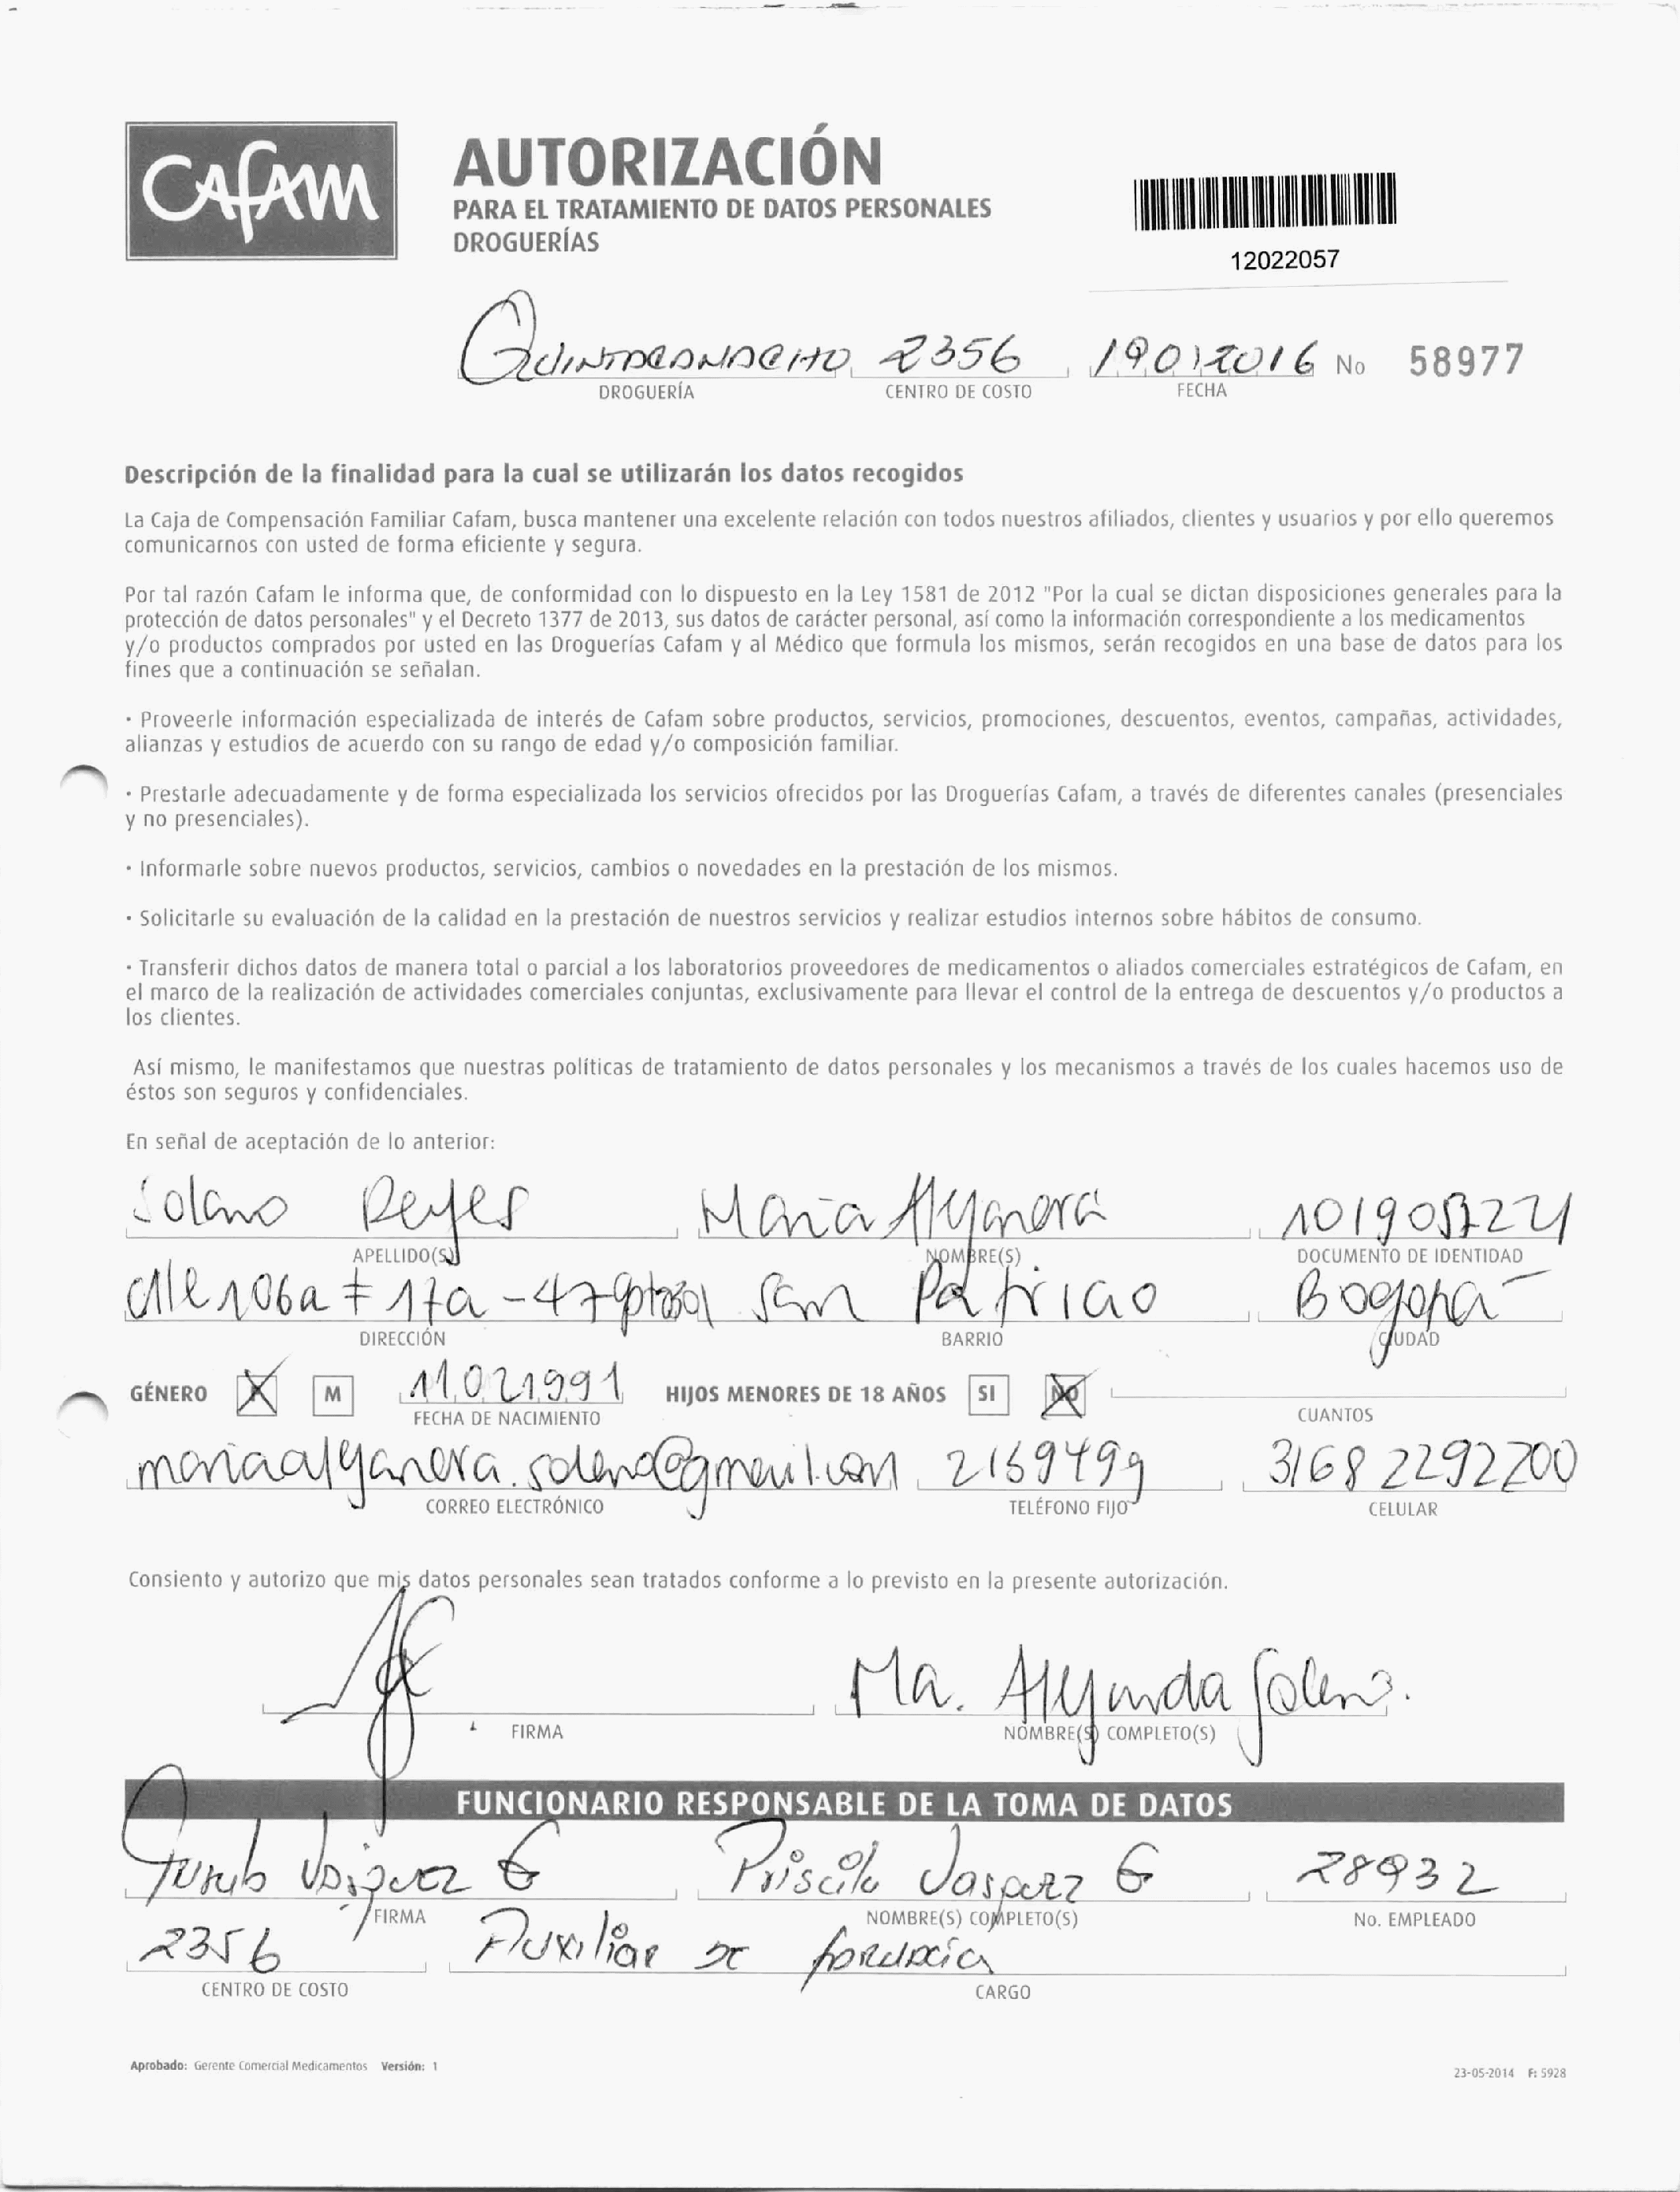 CAFAM
AUTORIZACIÓN
PARA EL TRATAMIENTO DE DATOS PERSONALES
DROGUERÍAS
12022057
2356 19012016 No 58977
DROGUERÍA CENTRO DE COSTO FECHA
Descripción de la finalidad para la cual se utilizarán los datos recogidos
La Caja de Compensación Familiar Cafam, busca mantener una excelente relación con todos nuestros afiliados, clientes y usuarios y por ello queremos
comunicarnos con usted de forma eficiente y segura.
Por tal razón Cafam le informa que, de conformidad con lo dispuesto en la Ley 1581 de 2012 "Por la cual se dictan disposiciones generales para la
protección de datos personales" y el Decreto 1377 de 2013, sus datos de carácter personal, así como la información correspondiente a los medicamentos
y/o productos comprados por usted en las Droguerías Cafam y al Médico que formula los mismos, serán recogidos en una base de datos para los
fines que a continuación se señalan.
· Proveerle información especializada de interés de Cafam sobre productos, servicios, promociones, descuentos, eventos, campañas, actividades,
alianzas y estudios de acuerdo con su rango de edad y/o composición familiar.
· Prestarle adecuadamente y de forma especializada los servicios ofrecidos por las Droguerías Cafam, a través de diferentes canales (presenciales
y no presenciales).
· Informarle sobre nuevos productos, servicios, cambios o novedades en la prestación de los mismos.
· Solicitarle su evaluación de la calidad en la prestación de nuestros servicios y realizar estudios internos sobre hábitos de consumo.
· Transferir dichos datos de manera total o parcial a los laboratorios proveedores de medicamentos o aliados comerciales estratégicos de Cafam, en
el marco de la realización de actividades comerciales conjuntas, exclusivamente para llevar el control de la entrega de descuentos y/o productos a
los clientes.
Así mismo, le manifestamos que nuestras políticas de tratamiento de datos personales y los mecanismos a través de los cuales hacemos uso de
éstos son seguros y confidenciales.
En señal de aceptación de lo anterior:
Solano Reyes Maria Alejandra
APELLIDO(S) NOMBRE(S) DOCUMENTO DE IDENTIDAD
Calle 106a # 17a - 47 San Patricio Bogotá
DIRECCIÓN BARRIO CIUDAD
GÉNERO M 11021991 HIJOS MENORES DE 18 AÑOS SI NO
FECHA DE NACIMIENTO CUANTOS
mariaalejandra.solano@gmail.com 2159499 31682292200
CORREO ELECTRÓNICO TELÉFONO FIJO CELULAR
Consiento y autorizo que mis datos personales sean tratados conforme a lo previsto en la presente autorización.
Ma. Alejandra Solano.
FIRMA NOMBRE(S) COMPLETO(S)
FUNCIONARIO RESPONSABLE DE LA TOMA DE DATOS
Vasquez G Priscila Vasquez G 28932
FIRMA NOMBRE(S) COMPLETO(S) No. EMPLEADO
2356 Auxiliar de farmacia
CENTRO DE COSTO CARGO
Aprobado: Gerente Comercial Medicamentos Versión: 1
23-05-2014 F: 5928